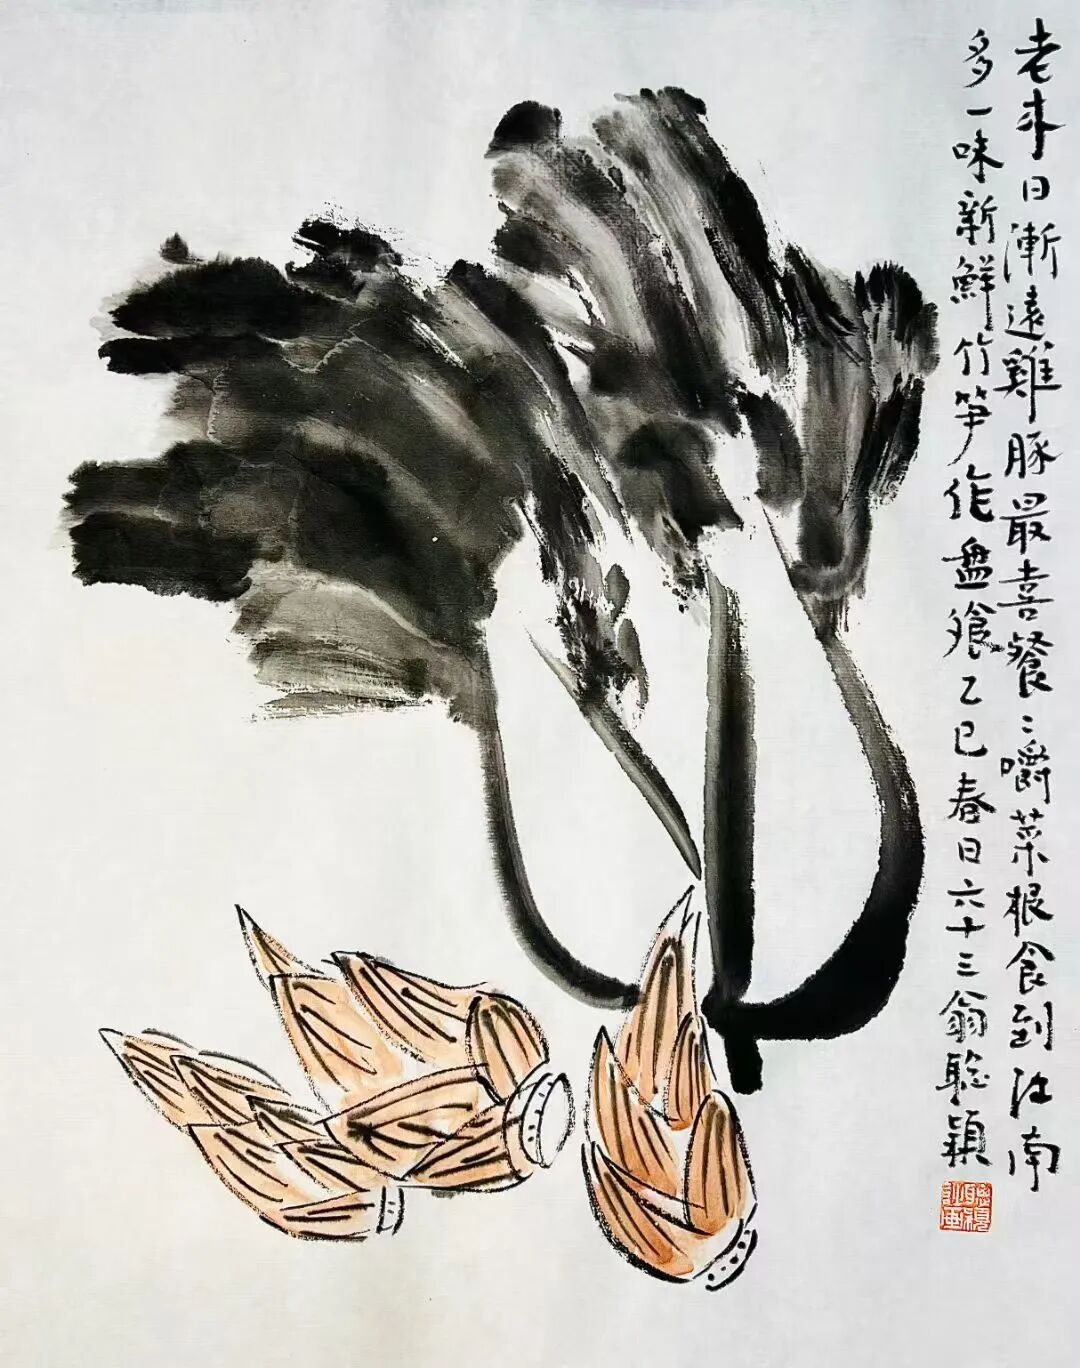 老来日渐远雞豚最喜餐〻嚼菜根食到江南
多一味新鮮竹笋作盘飧乙巳春日六十三翁聪颖